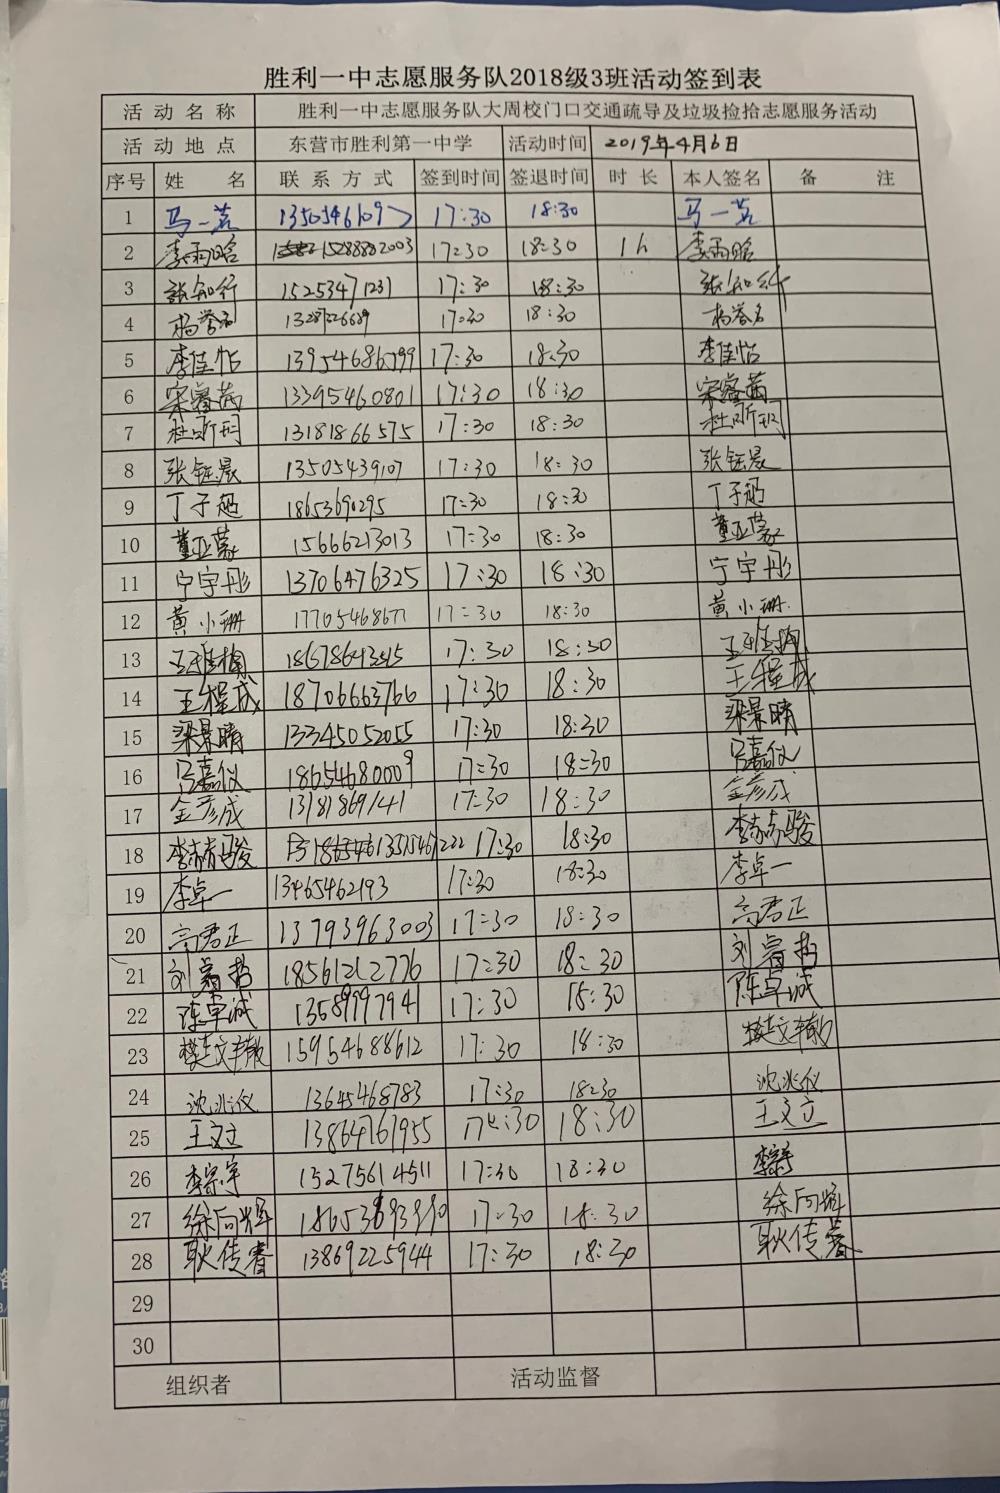 胜利一中志愿服务队2018级3班活动签到表
活动名称 胜利一中志愿服务队大周校门口交通疏导及垃圾捡拾志愿服务活动
活动地点 东营市胜利第一中学 活动时间 2019年4月6日
序号 姓名 联系方式 签到时间 签退时间 时长 本人签名 备注
1 马一 17:30 18:30 马一
2 李雨晗 15288882003 17:30 18:30 1h 李雨晗
3 张知行 15253471231 17:30 18:30 张知行
4 杨誉名 17:30 18:30 杨誉名
5 李佳怡 13954686599 17:30 18:30 李佳怡
6 宋睿茜 13395460801 17:30 18:30 宋睿茜
7 杜昕玥 13181866575 17:30 18:30 杜昕玥
8 张钰晨 13505439107 17:30 18:30 张钰晨
9 丁子 18653690295 17:30 18:30 丁子
10 董亚蒙 15666213013 17:30 18:30 董亚蒙
11 宁宇彤 13706476325 17:30 18:30 宁宇彤
12 黄小珊 17705468677 17:30 18:30 黄小珊
13 17:30 18:30
14 王程成 18706663766 17:30 18:30 王程成
15 梁景晴 13345052055 17:30 18:30 梁景晴
16 马嘉仪 18654680009 17:30 18:30 马嘉仪
17 金彦成 13181869141 17:30 18:30 金彦成
18 17:30 18:30
19 李卓一 13465462193 17:30 18:30 李卓一
20 高君正 13793963003 17:30 18:30 高君正
21 刘 18561212776 17:30 18:30 刘
22 陈卓诚 13589997941 17:30 18:30 陈卓诚
23 楚文辙 15954688612 17:30 18:30 楚文辙
24 沈兆仪 13645468783 17:30 18:30 沈兆仪
25 王文立 13864761955 17:30 18:30 王文立
26 李宗宇 15275614511 17:30 18:30
27 徐向辉 17:30 18:30 徐向辉
28 耿传睿 13869225944 17:30 18:30 耿传睿
29
30
组织者 活动监督